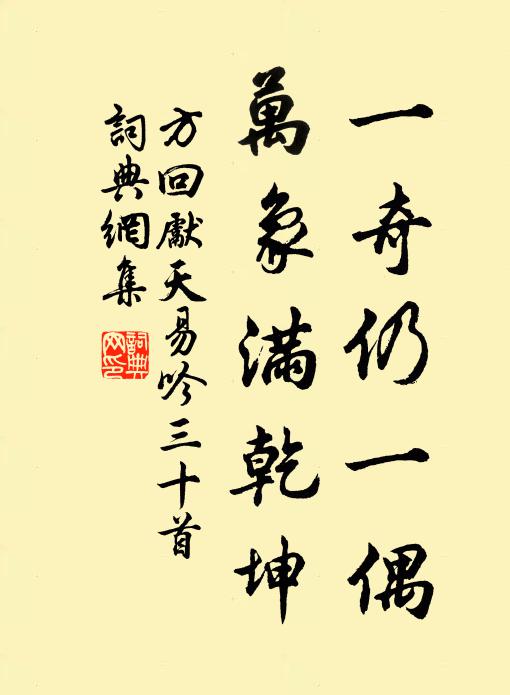 一奇仍一偶
萬象滿乾坤
方回獻天易吟三十首
詞典網集
詞典
网印